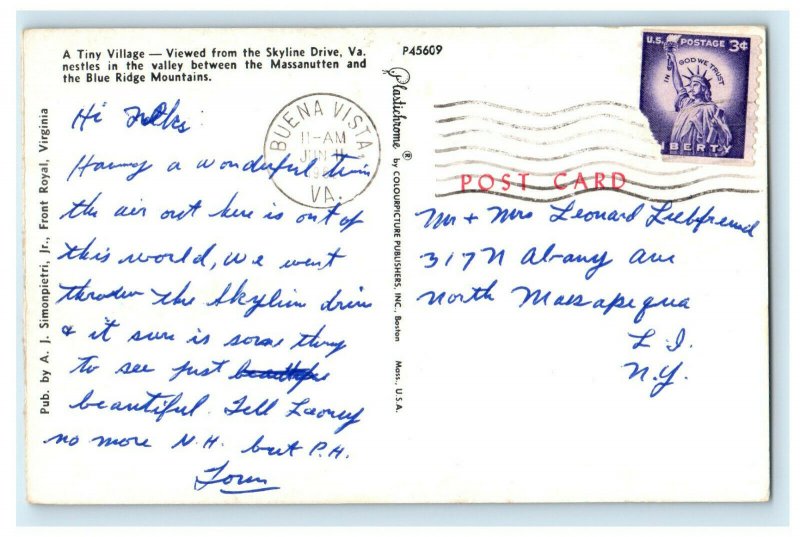 A Tiny Village — Viewed from the Skyline Drive, Va.
nestles in the valley between the Massanutten and
the Blue Ridge Mountains.
P45609
U.S. POSTAGE 3¢
IN GOD WE TRUST
LIBERTY
BUENA VISTA
11-AM
JUN 11
VA.
POST CARD
Hi Folks
Having a wonderful time
the air out here is out of
this world, we went
through the Skyline drive
& it sure is some thing
to see just
beautiful. Tell
no more N.H. but P.H.
Mr + Mrs Leonard Liebfreund
317 N Albany Ave
North Massapequa
L.I.
N.Y.
Pub. by A. J. Simonpietri, Jr., Front Royal, Virginia
Plastichrome ® by COLOURPICTURE PUBLISHERS, INC., Boston Mass., U.S.A.